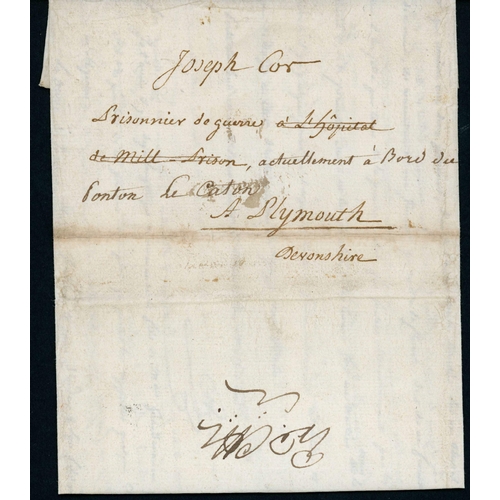 Joseph Cor
Prisonnier de guerre à L'hôpital
de Mill-Prison, actuellement à Bord du
ponton Le Caton
A Plymouth
Devonshire